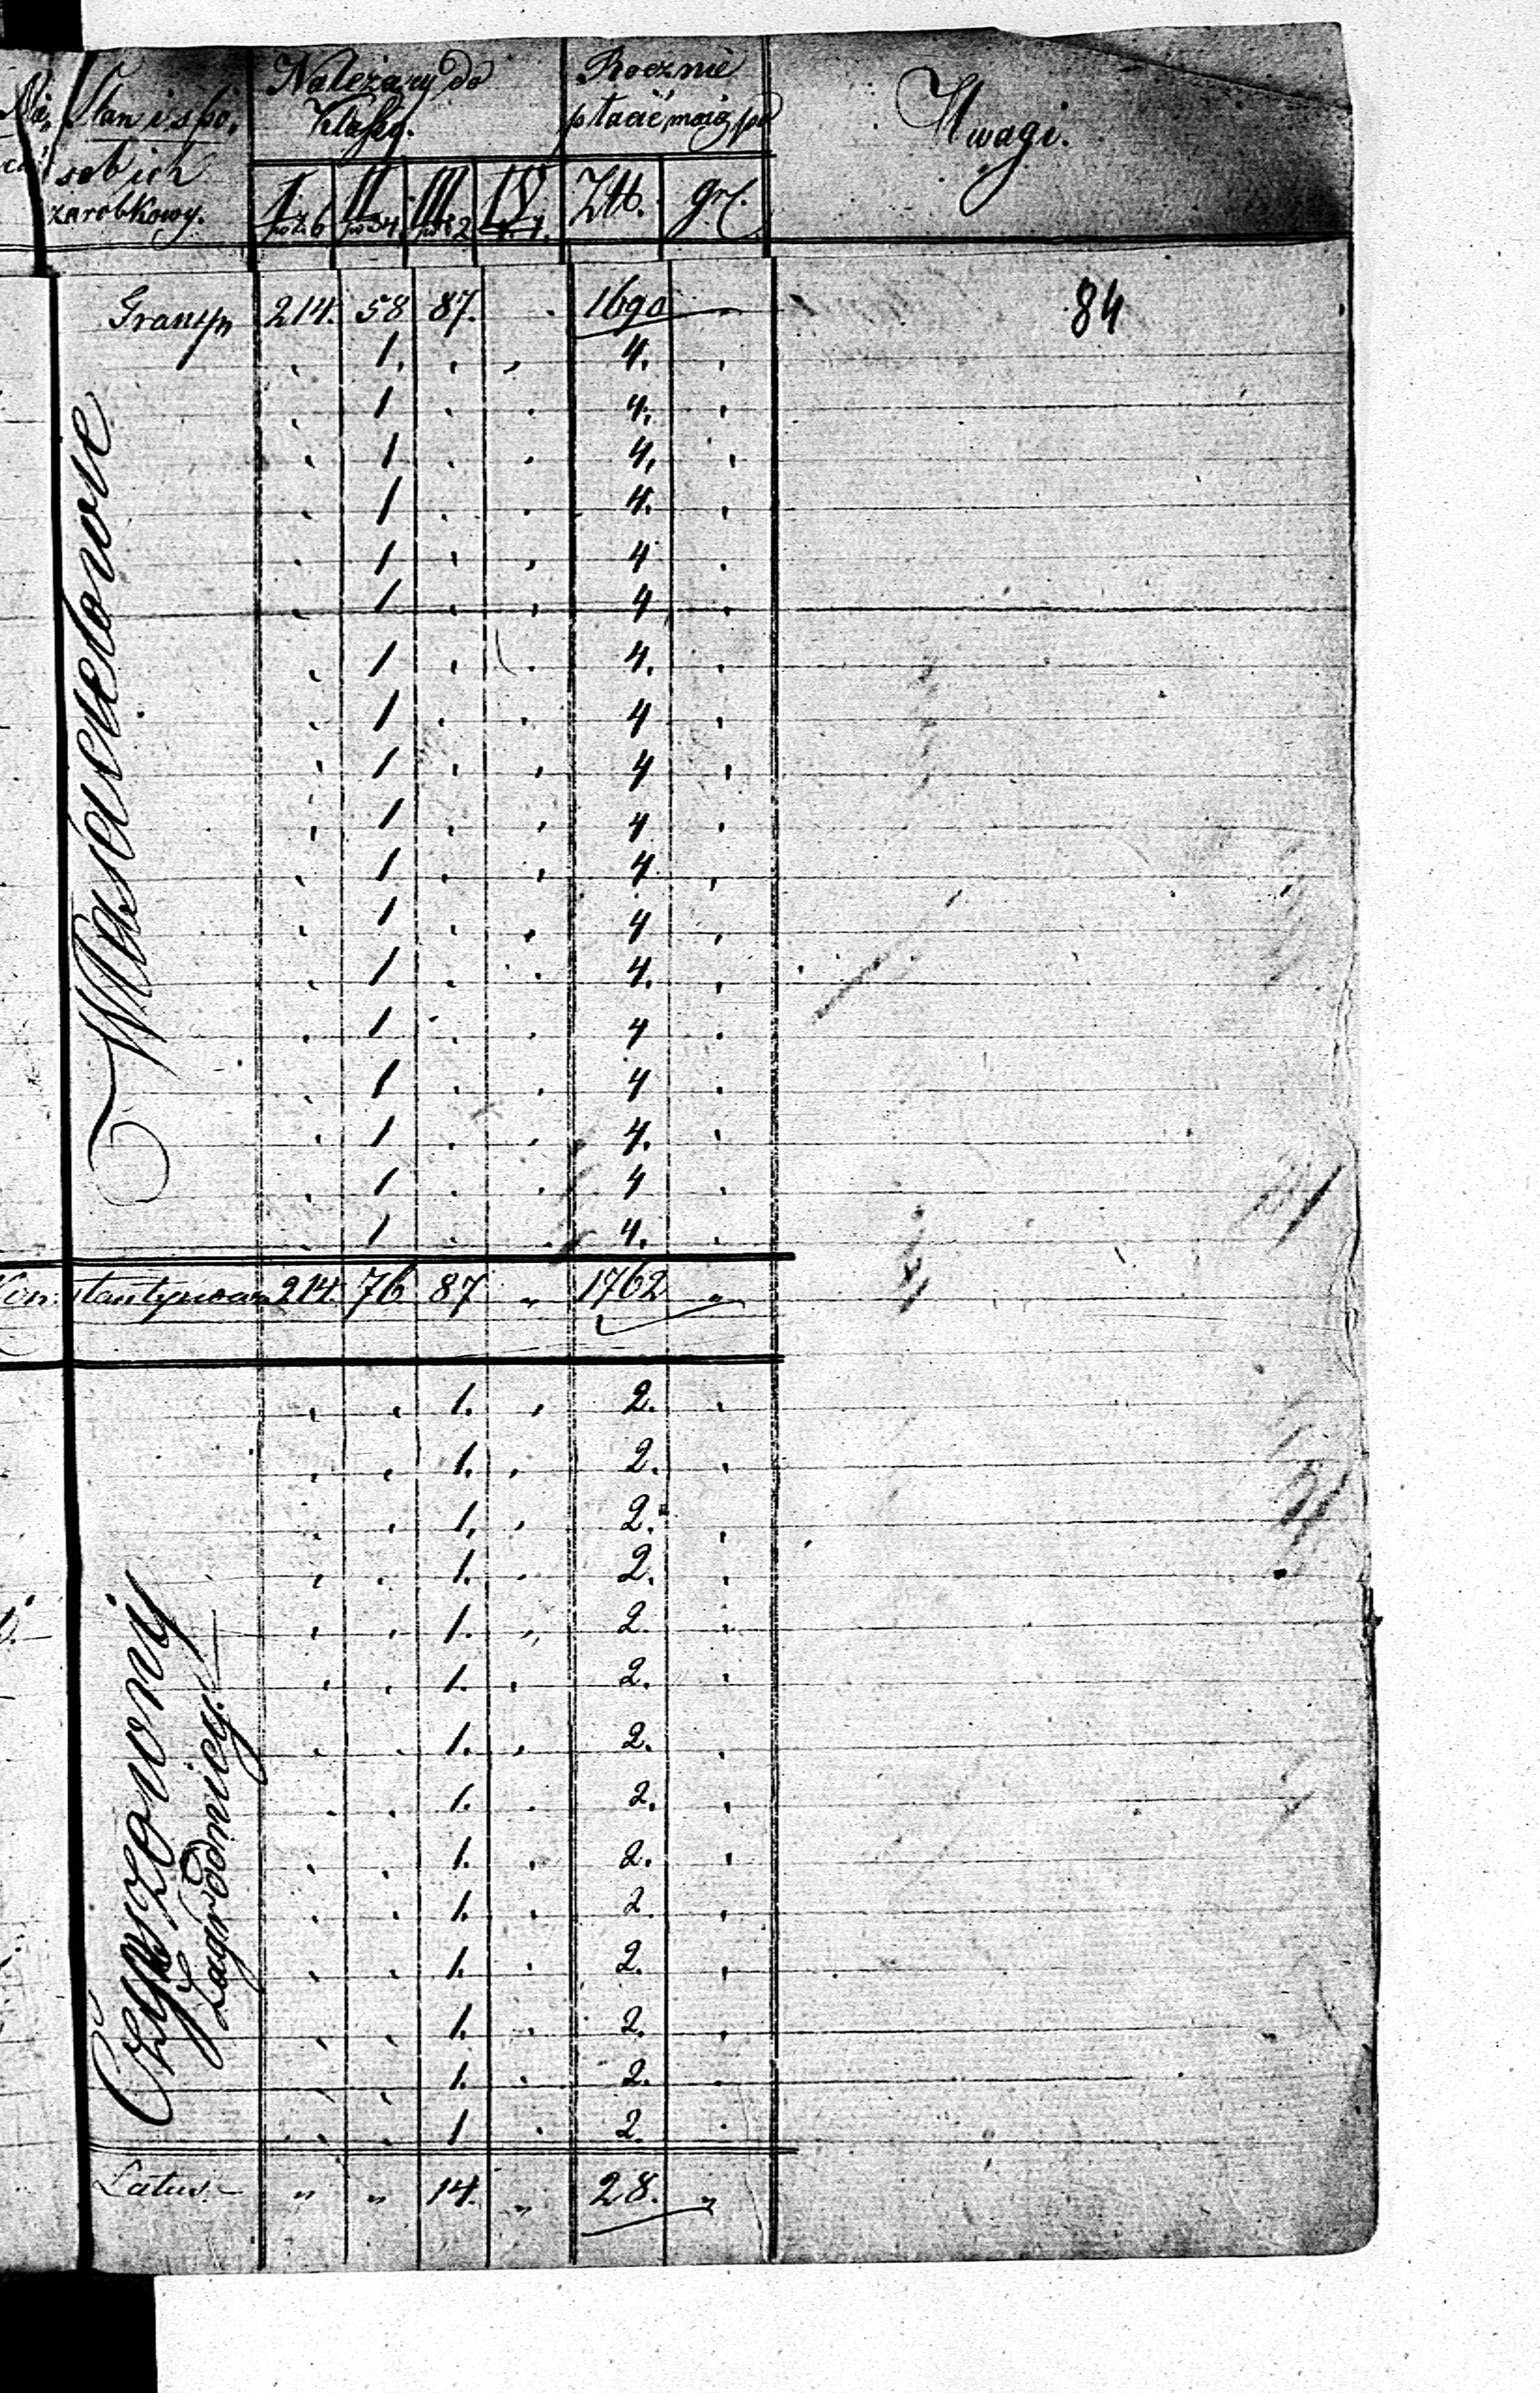 Stan i spo.
sobich
zarobkowy.
Należący do
Klassy.
I II III IV
po zł 6 po zł 4 po zł 2 zł 1.
Rocznie
płacić maią po
Złt. gr.
Uwagi.
84
Transp 214. 58 87. . 1690 —
Właścicielowie
, 1. . , 4. ,
. 1 . . 4. ,
, 1 . . 4. ,
. 1 . . 4. ,
. 1 . , 4 .
. 1 . , 4 .
, 1 . . 4. .
, 1 . . 4 .
, 1 . , 4 ,
, 1 . , 4 .
, 1 . , 4 ,
. 1 . , 4 ,
, 1 . . 4. ,
. 1 . . 4 .
, 1 . , 4 .
. 1 . , 4. .
. 1 . . 4 .
. 1 . . 4. .
Konstantynowa 214. 76 87 „ 1762 „
Czynszownicy
Zagrodnicy.
, , 1. , 2. .
. , 1. , 2. .
. , 1. , 2. ,
, . 1. . 2. .
, . 1. , 2. .
, . 1. . 2. .
. . 1. , 2. .
. . 1. . 2. ,
. , 1. , 2. ,
. . 1. . 2. ,
. . 1. . 2. ,
, , 1. . 2. ,
, , 1. . 2. .
. , 1 . 2. .
Latus. — „ „ 14. „ 28. „